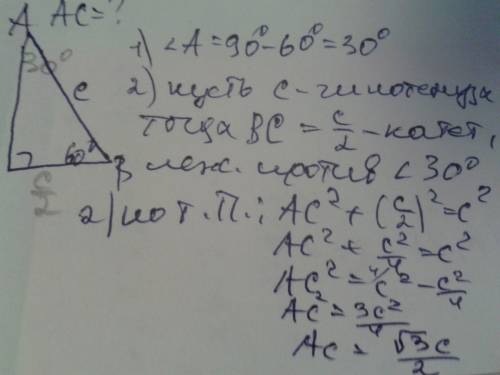 A AC = ?
30°
c
60°
B
c/2
1) ∠A = 90° - 60° = 30°
2) пусть c - гипотенуза
тогда BC = c/2 - катет,
леж. против ∠30°
2) по т. П.: AC² + (c/2)² = c²
AC² + c²/4 = c²
AC² = ⁴/c² - c²/4
AC² = 3c²/4
AC = √3c/2